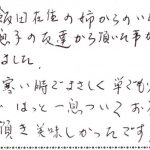 飯田在住の姉からのい
息子の友達から頂いた事が
ました。
寒い時でまさしく単でも
はっと一息ついてお
頂き美味しかったです